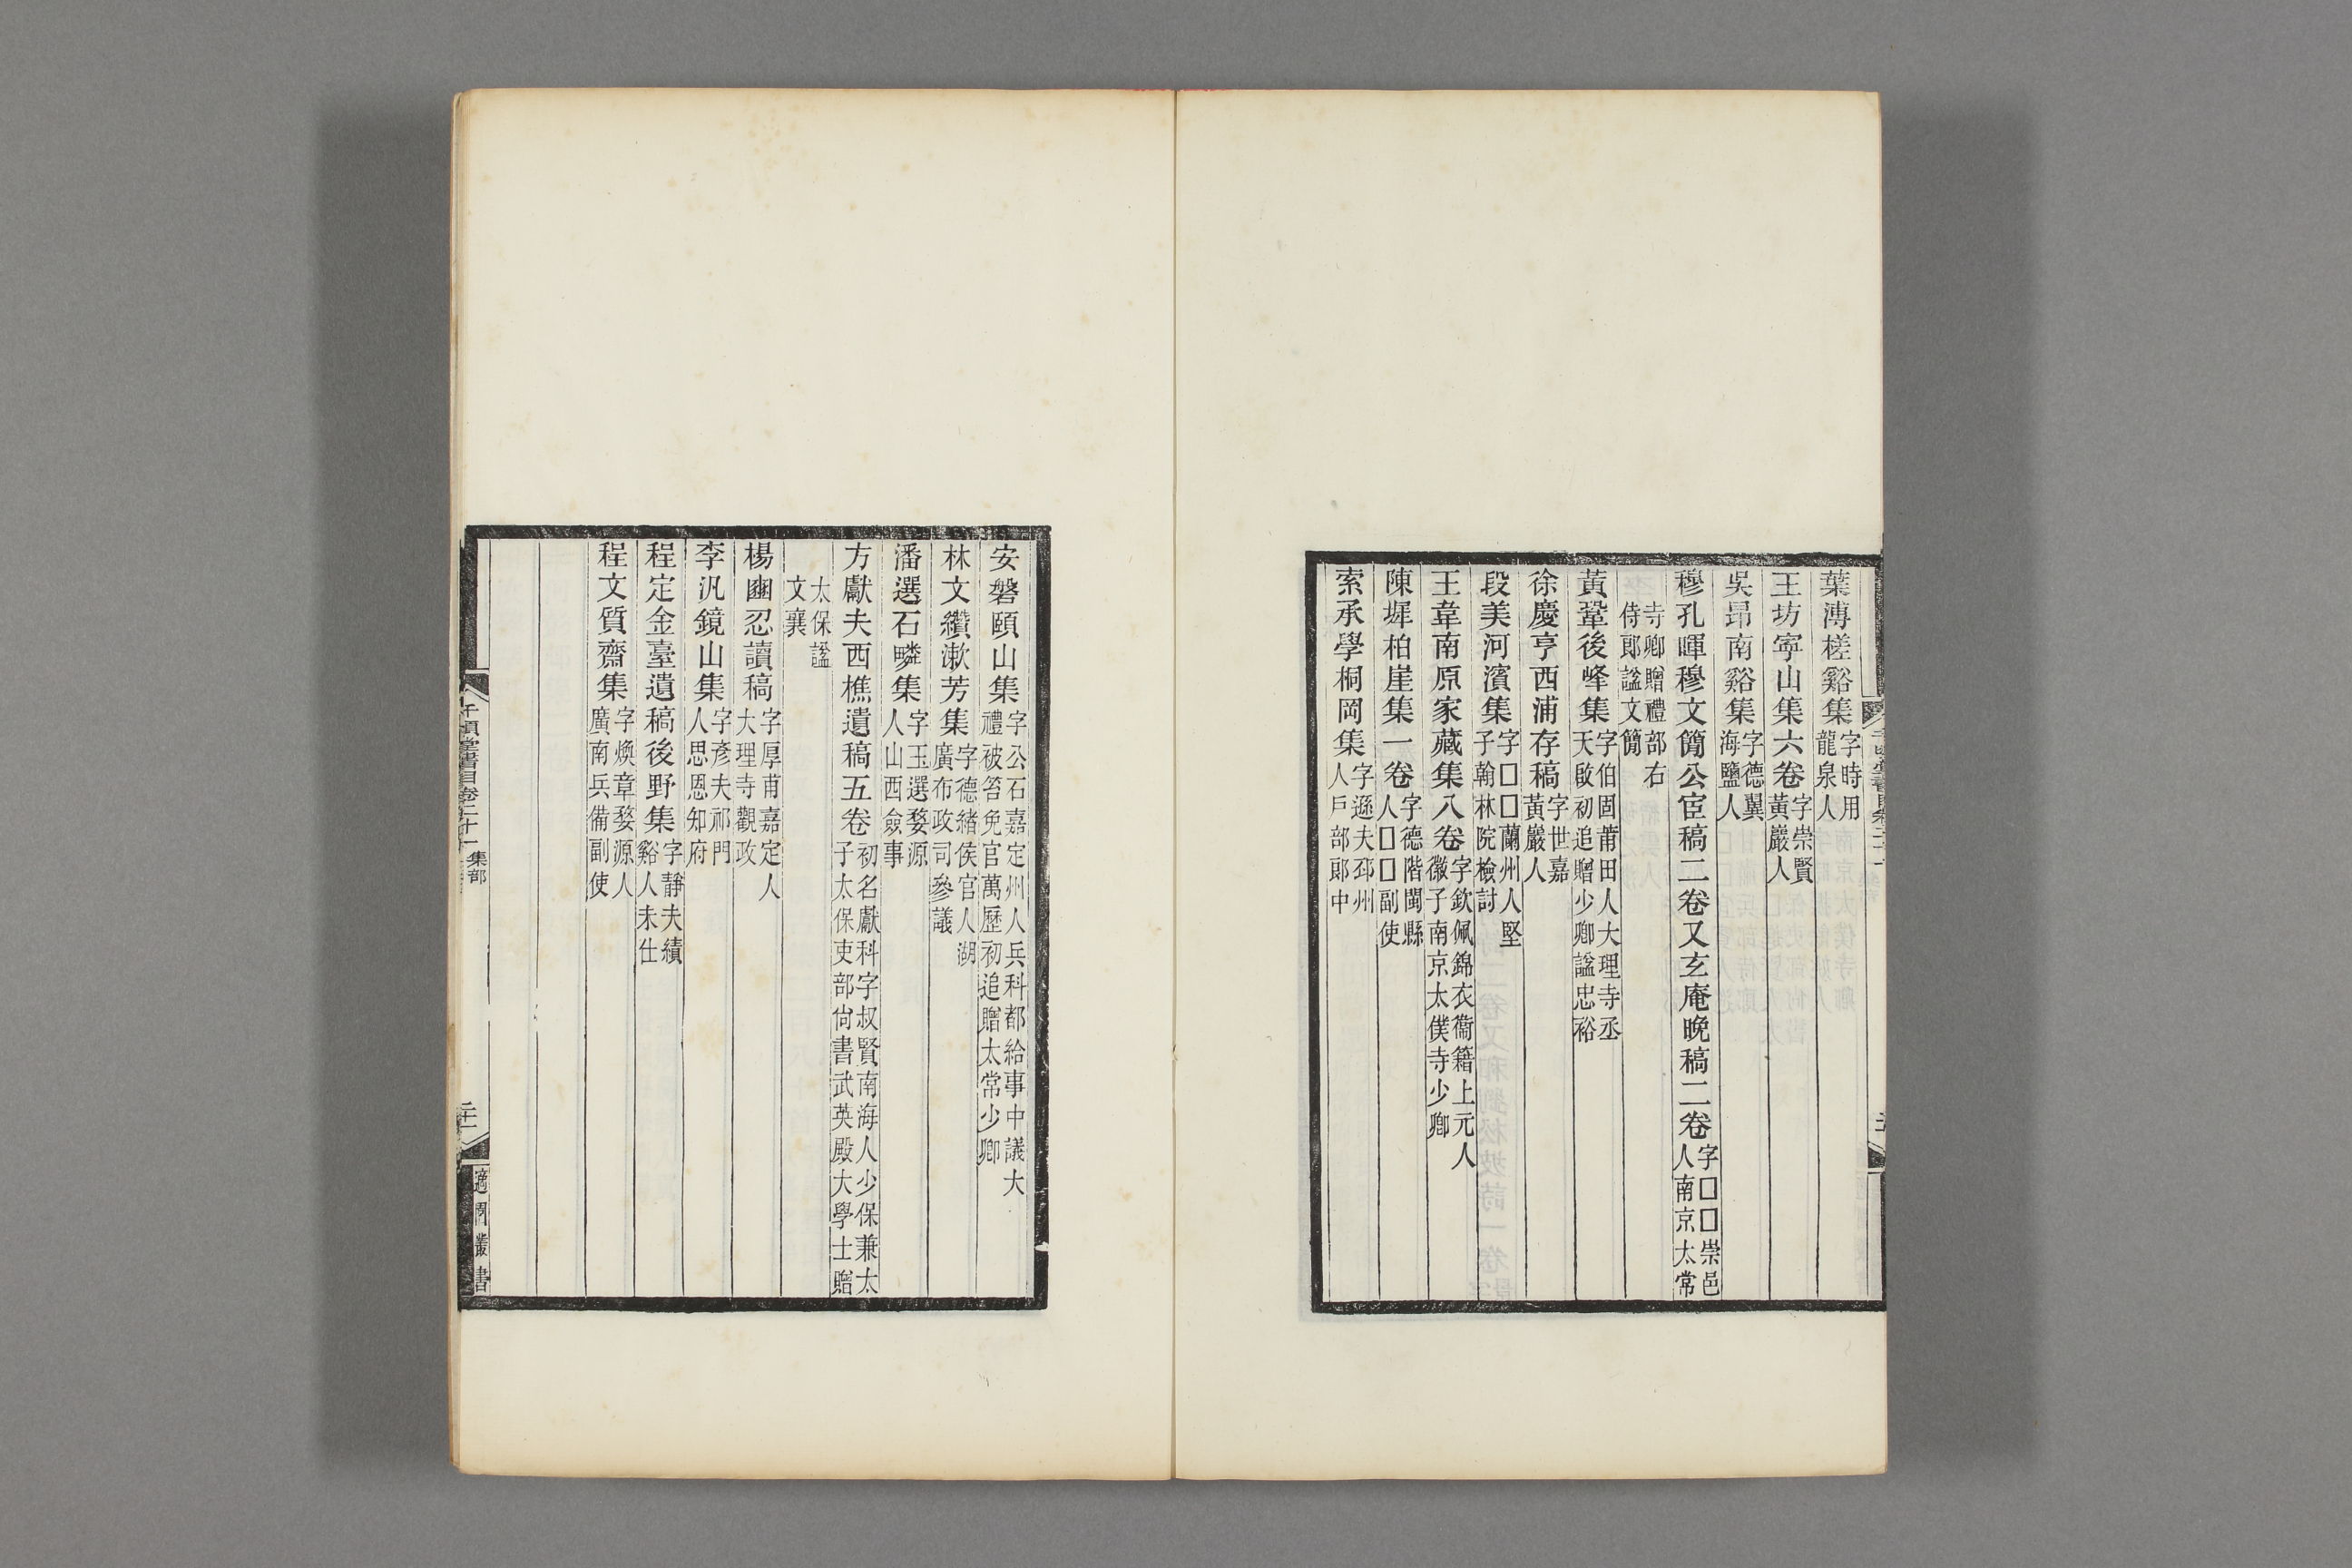 葉溥槎谿集字時用龍泉人
王坊寧山集六卷字崇賢黃巖人
吳昂南谿集字德翼海鹽人
穆孔暉穆文簡公宦稿二卷又玄庵晚稿二卷字□□崇邑人南京太常
寺卿贈禮部右侍郎謚文簡
黃鞏後峰集字伯固莆田人大理寺丞天啟初追贈少卿謚忠裕
徐慶亨西浦存稿字世嘉黃巖人
段美河濱集字□□蘭州人堅子翰林院檢討
王韋南原家藏集八卷字欽佩錦衣衞籍上元人徽子南京太僕寺少卿
陳墀柏崖集一卷字德階閩縣人□□副使
索承學桐岡集字遜夫邳州人戶部郎中
安磐頤山集字公石嘉定州人兵科都給事中議大禮被笞免官萬歷初追贈太常少卿
林文纘漱芳集字德緒侯官人湖廣布政司參議
潘選石疄集字玉選婺源人山西僉事
方獻夫西樵遺稿五卷初名獻科字叔賢南海人少保兼太子太保吏部尙書武英殿大學士贈
太保謚文襄
楊豳忍讀稿字厚甫嘉定人大理寺觀政
李汎鏡山集字彥夫祁門人思恩知府
程定金臺遺稿後野集字靜夫績谿人未仕
程文質齋集字煥章婺源人廣南兵備副使
千頃堂書目卷二十一 集部
二十一
適園叢書